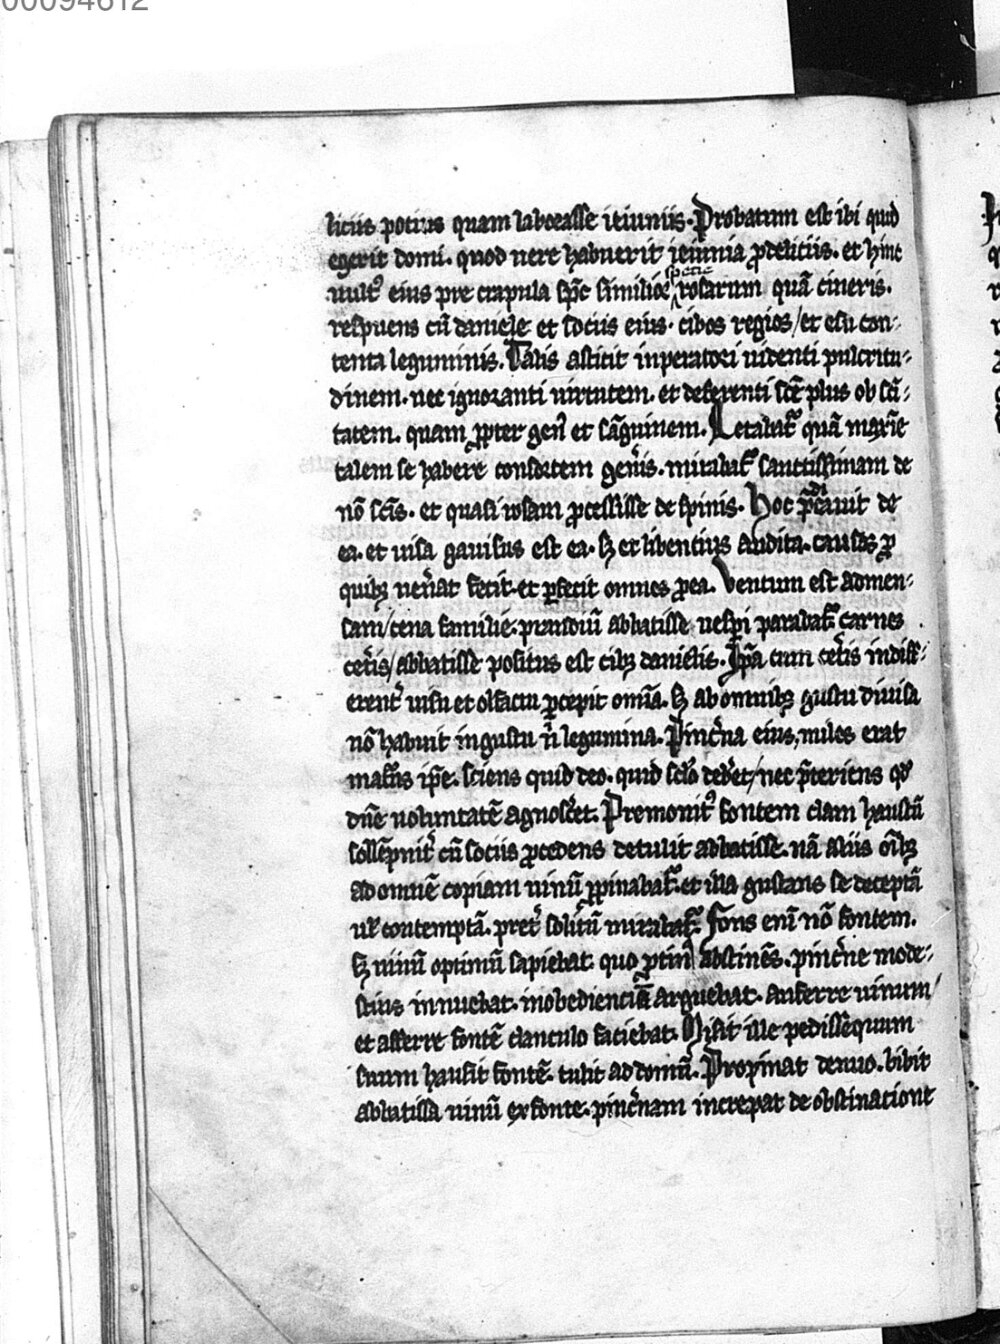 00094612
liciis potius quam laborasse ieiuniis. Probatum est ibi quid
egerit domi. quod uere habuerit ieiunia p̱ deliciis. et hinc
uultꝰ eius pre crapula sp̄e similior specie rosarum quā cineris.
respuens cū daniele et sociis eius. cibos regios/ et esu con-
tenta leguminis. Talis astitit inperatori uidenti pulcritu-
dinem. nec ignoranti uirtutem. et deferenti sc̄e plus ob sā-
tatem. quam ꝓpter genꝰ et sāguinem. Letabat᷑ quā
talem se habere consortem gen̄is. mirabat᷑ sanctissimam de
nō sc̄is. et quasi rosam ꝓcessisse de spinis. Hoc de
ea. et uisa gauisus est ea. sꝫ et libentius audita. causas ꝓ
quibꝫ uen̄at fecit. et ꝑfecit omnes ꝓ ea. Ventum est ad men-
sam/ cena familie. prandiū abbatisse uesꝑi parabat᷑ carnes
cet̄is/ abbatisse positus est cibꝫ danielis. Ip̄a cum cet̄is indiff-
erent᷑ uisu et olfactu ꝑcepit om̄ia. sꝫ ab omnibꝫ gustu diuisa
nō habuit in gustu n̄ legumina. Pinc̄na eius, miles erat
ip̄e. sciens quid deo. quid sc̄lo deb̄et/ nec p̄teriens
dn̄e uoluntatē agnosc̄et. Premonitꝰ fontem clam haustū
sollēpnit᷑ cū sociis ꝓcedens detulit abbatisse. nā aliis om̄ibꝫ
ad omnē copiam uinū ꝓpinabat᷑. et illa gustans se deceptā
ul̄ contemptā. pret᷑ solitū mirabat᷑. Fons eni nō fontem.
sꝫ uinū optimū sapiebat. quo ꝓtinꝰ abstinēs. pinc̄ne mode-
stius innuebat. inobedienciā arguebat. auferre uinum/
et afferre fontē clanculo faciebat. Misit ille pedissequum
suum hausit fontē. tulit ad domū. Propinat denuo. bibit
abbatissa uinū ex fonte. pinc̄nam increpat de obstinatione